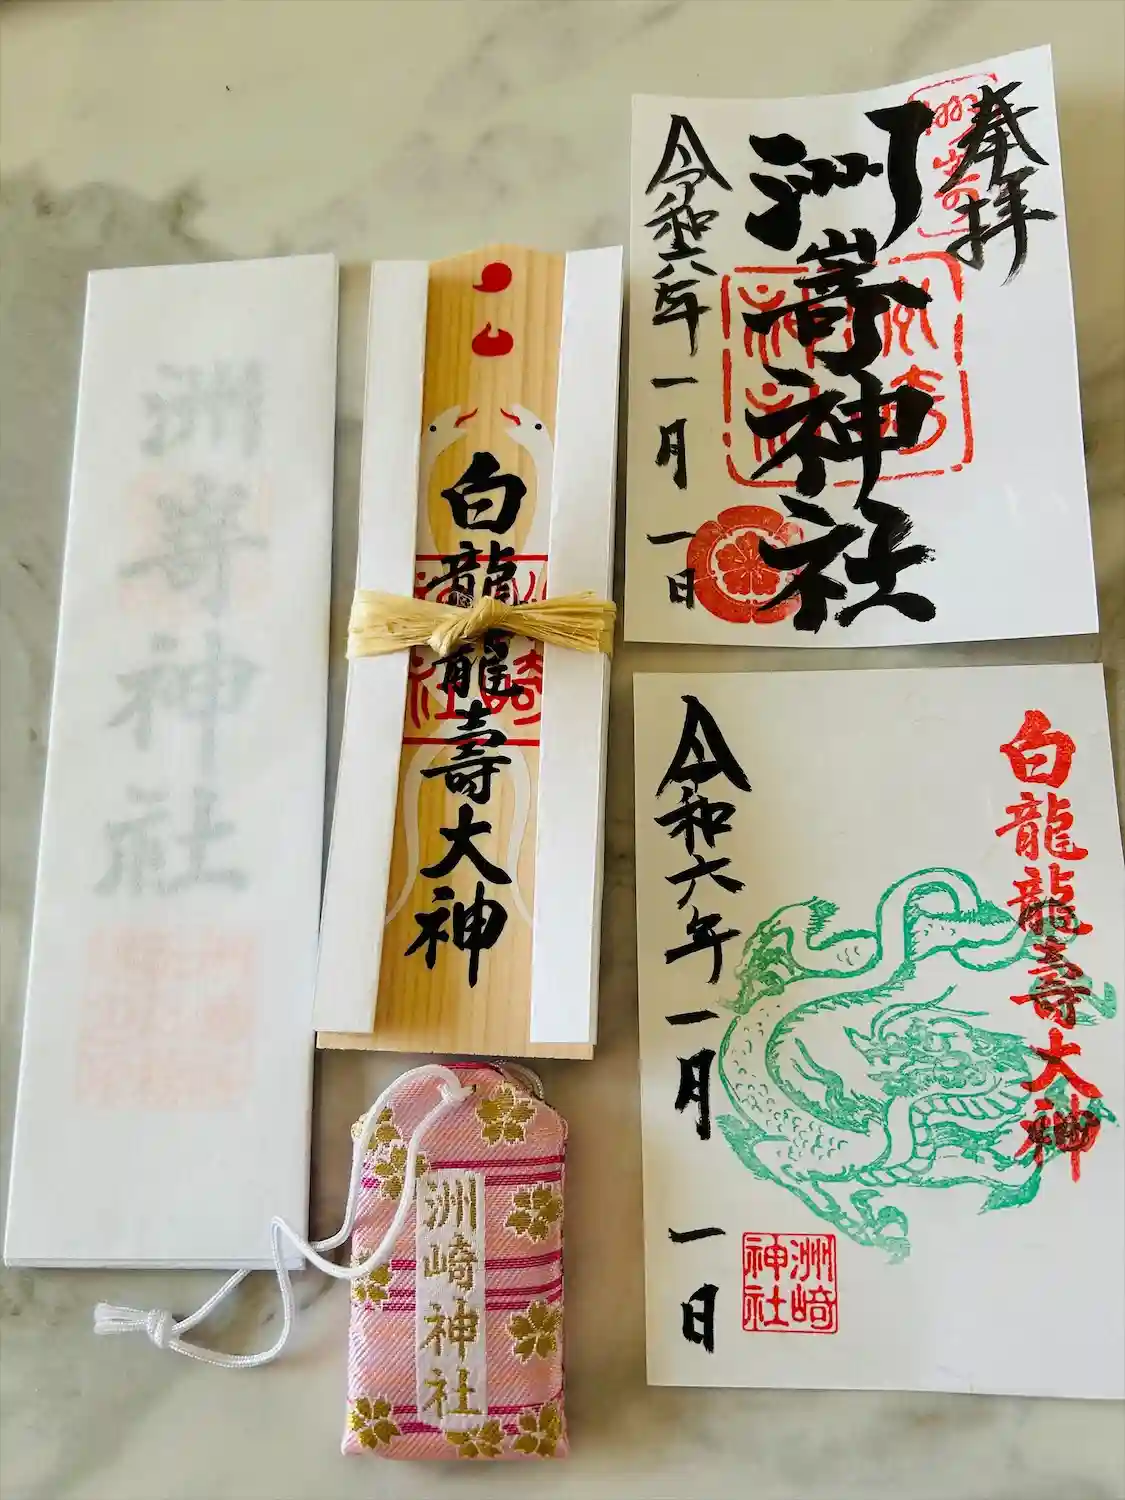 洲嵜神社
白龍龍壽大神
洲崎神社
奉拝
洲嵜神社
令和六年一月一日
白龍龍壽大神
令和六年一月一日
洲崎
神社